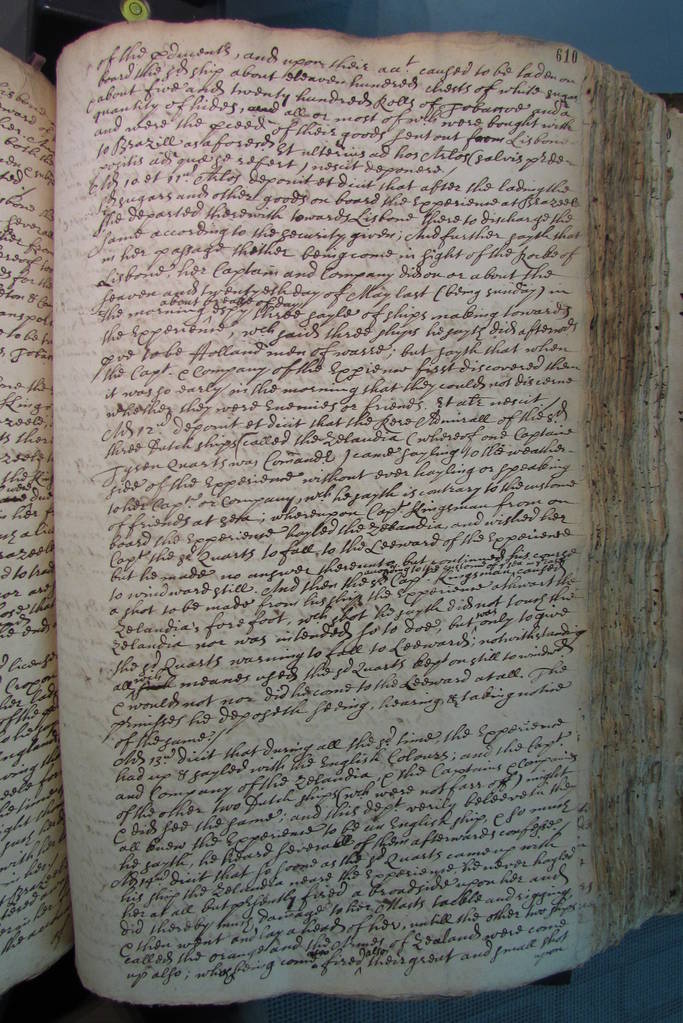 610
of the pduents, and upon their acct caused to be laden on
board the sd ship about eleaven hundred chests of white sugar
about five and twenty hundred Rolls of Tobaccoe and a
quantity of hides, and all or most of wch were bought with
and were the pceed of theis goods sent out from Lisbone
to Brazill as aforesd Et ulterius ad hos Arlos salvis p
positis ad quos se refert, nescit deponere /
Ad 10 et 11 Arlos deponit et dicit that after the lading the
sd sugars and other goods on board the Experience at Brazeele
she departed therewith towards Lisbone there to discharge the
same according to the security given; And further sayth that
in her passage thether being come in sight of the Rocke of
Lisbone her Captain and Company did on or about the
seaven and twentyeth day of May last (being sunday) in
the morning about breake of day espy three sayle of ships making towards
the Experience, wch said three ships he sayth did afterwds
pve to be Holland men of warre; but sayth that when
the Capt & Company of the Experience first discovered them
it was so early in the morning that they could not discerne
whether they were Enemies or friends. Et altr nescit /
Ad 12 deponit et dicit that the Rere Admirall of the sd
three Dutch ships (called the Zelandia (whereof one Captaine
Tysen Quarts was Comandr) came sayling to the weather-
side of the Experience without ever hayling or speaking
to her Capt or Company, wch he sayth is contrary to the custome
of friends at sea; whereupon Capt Kingsman from on
board the Experience hayled the Zelandia, and wished her
Capt the sd Quarts to fall to the Leeward of the Experience
but he made no answer thereunto but continued his course
to windward still. And then the sd Capt Kingsman, according to the custome of sea caused
a shot to be made from his ship the Experience athwart the
Zelandia's forefoot, wch shot he sayth did not touch the
Zelandia nor was intended so to doe, but was only to give
the sd Quarts warning to fall to Leeward; notwithstanding
all wch meanes used the sd Quarts kept on still to windward
& would not nor did he come to the Leeward at all. The
premisses he deposeth seeing, hearing, & taking notice
of the same /
Ad 13 dicit that during all the sd time the Experience
had up & sayled with the English Colours; and the Capt
and Company of the Zelandia, & the Captaines & Companies
of the other two Dutch ships (wch were not farr off) might
& did see the same; and this dept verily beleeveth the
all knew the Experience to be an English ship, & so much
he sayth, he heard severall of them afterwards confesse /
Ad 14 dicit that so soone as the sd Quarts came up with
his ship the Zelandia neare the Experience, he never hayled
her at all but presently fired a broadside upon her and
did thereby much damage to her Masts tackle and rigging
& then went and lay ahead of her, untill the other two ships
called the orange and the Armes of Zealand were come
up also; who being come also fired also their great and small shot
upon